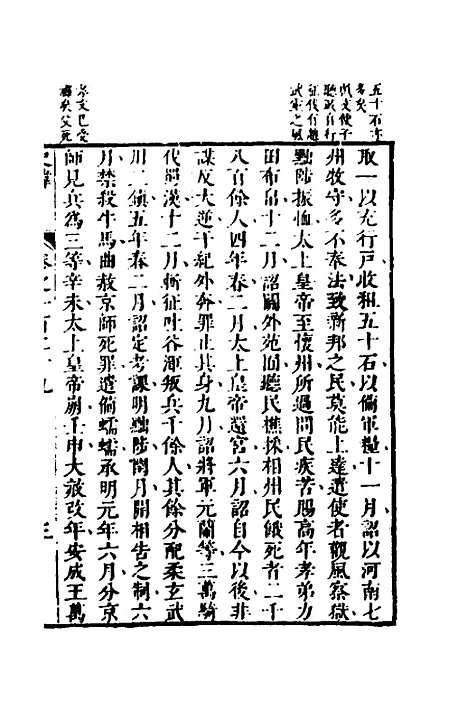 五十石亦
多矣
獻文使子
聽政自行
征伐有趙
武靈之風
取一以充行戶收租五十石以備軍糧十一月詔以河南七
州牧守多不奉法致新邦之民莫能上達遣使者觀風察獄
黜陟振恤太上皇帝至懷州所過問民疾苦賜高年孝弟力
田布帛十二月詔關外苑囿聽民樵採相州民餓死者二千
八百餘人四年春二月太上皇帝還宮六月詔自今以後非
謀反大逆干紀外奔罪止其身九月詔將軍元蘭等三萬騎
伐蜀漢十二月斬征吐谷渾叛兵千餘人其餘分配柔玄武
川二鎮五年春二月詔定考課明黜陟閏月開相告之制六
孝文已受
禪矣父死
月禁殺牛馬曲赦京師死罪遣備蠕蠕承明元年六月分京
師見兵為三等辛未太上皇帝崩壬申大赦改年安成王萬
史緯 卷之一百二十九 三